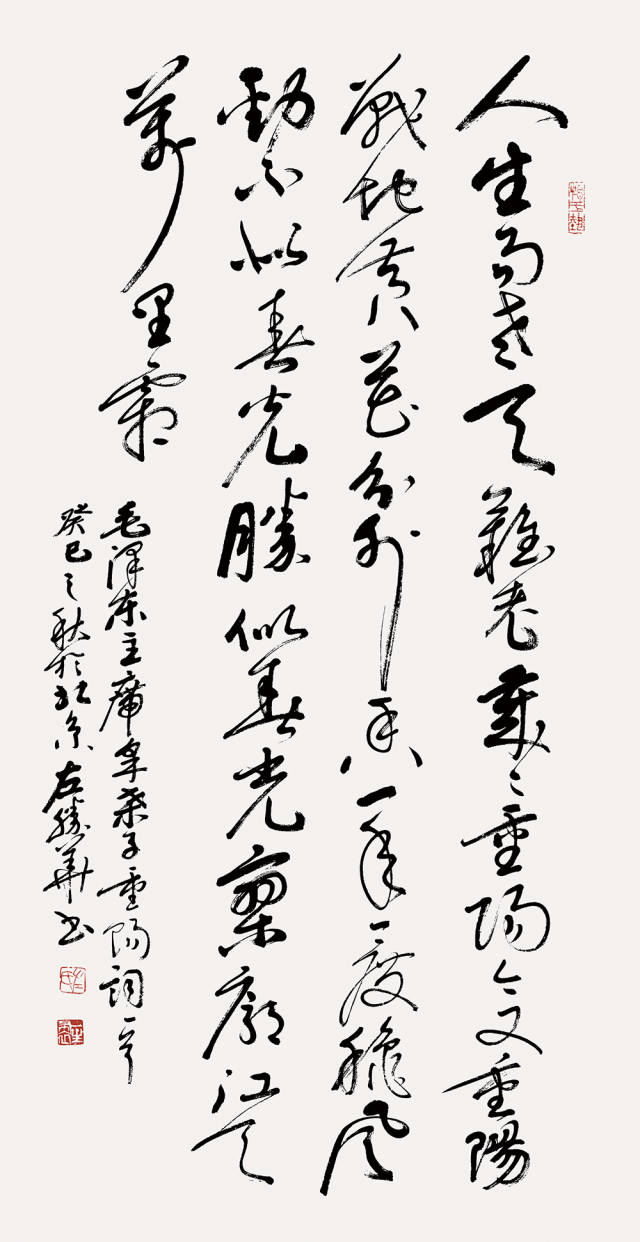 人生易老天難老歲々重陽今又重陽
戰地黃花分外香一年一度秋風
勁不似春光勝似春光寥廓江天
萬里霜
毛澤东主席采桑子重陽詞一首
癸巳之秋於北京左勝華书